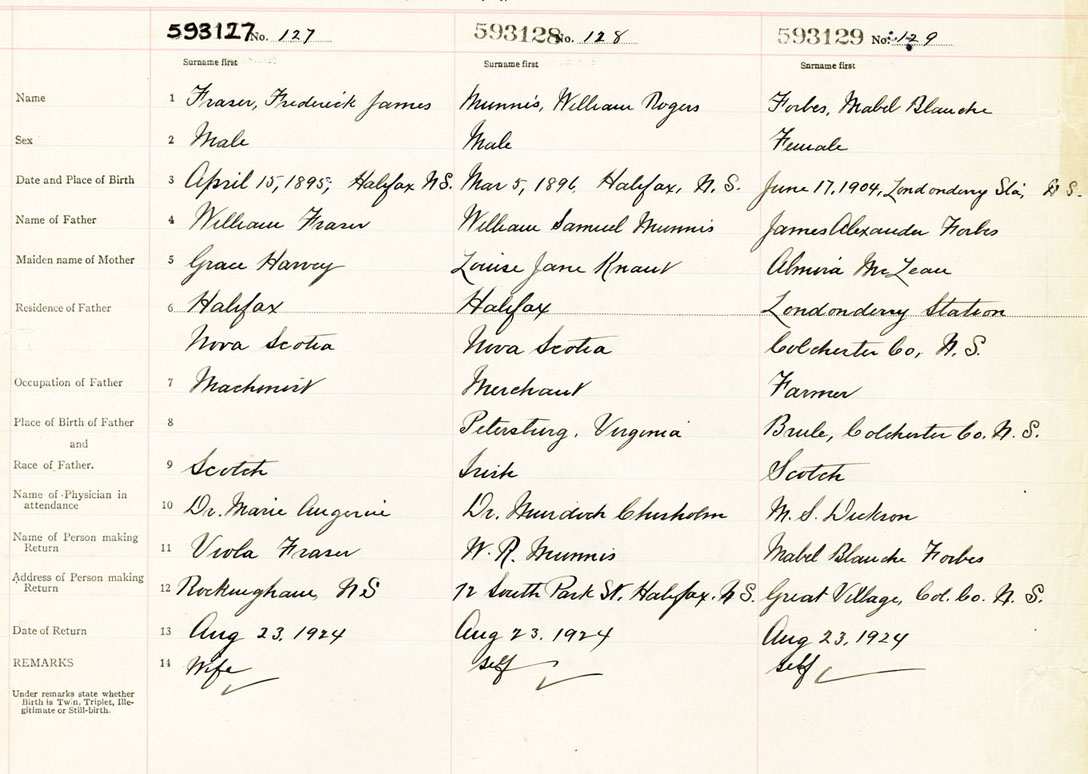 593127 No. 127 593128 No. 128 593129 No. 129
Surname first Surname first Surname first
Name 1 Fraser, Frederick James Munnis, William Rogers Forbes, Mabel Blanche
Sex 2 Male Male Female
Date and Place of Birth 3 April 15, 1895, Halifax N.S. Mar 5, 1896 Halifax, N.S. June 17, 1904, Londonderry Sta, N S.
Name of Father 4 William Fraser William Samuel Munnis James Alexander Forbes
Maiden name of Mother 5 Grace Harvey Louise Jane Knaut Almira McLean
Residence of Father 6 Halifax Halifax Londonderry Station
Nova Scotia Nova Scotia Colchester Co, N.S.
Occupation of Father 7 Machinist Merchant Farmer
Place of Birth of Father 8 Petersburg, Virginia Brule, Colchester Co. N.S.
and
Race of Father. 9 Scotch Irish Scotch
Name of Physician in
attendance 10 Dr. Marie Dr. Murdoch Chisholm M. S. Dickson
Name of Person making
Return 11 Viola Fraser W. R. Munnis Mabel Blanche Forbes
Address of Person making
Return 12 Rockingham, N S South Park St, Halifax. N S. Great Village, Col. Co. N. S.
Date of Return 13 Aug 23, 1924 Aug 23, 1924 Aug 23, 1924
REMARKS 14 Wife self self
Under remarks state whether
Birth is Twin, Triplet, Ille-
gitimate or Still-birth.